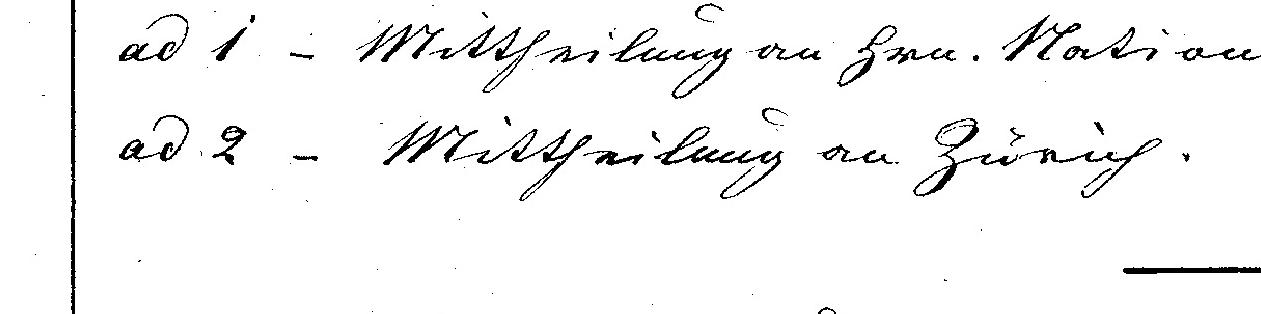 ad 1 - Mittheilung an Hrn. Nation
ad 2 - Mittheilung an Zürich.